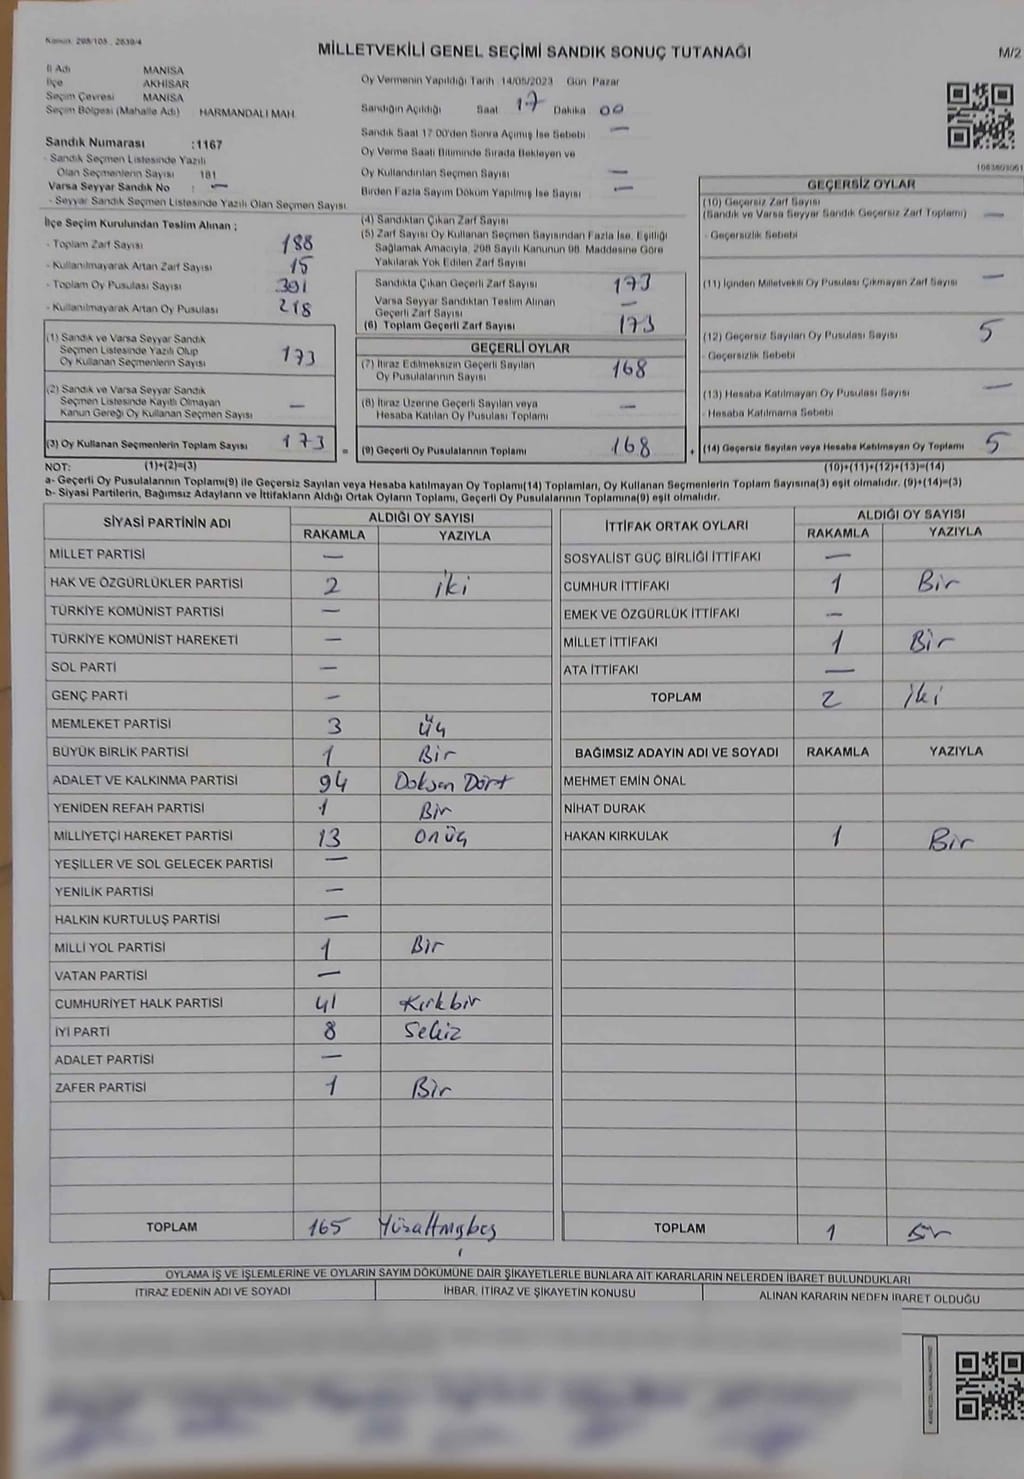 Kanun: 298/105 , 2839/4
MİLLETVEKİLİ GENEL SEÇİMİ SANDIK SONUÇ TUTANAĞI
M/2
İl Adı MANİSA
İlçe AKHİSAR
Seçim Çevresi MANİSA
Seçim Bölgesi (Mahalle Adı) HARMANDALI MAH.
Oy Vermenin Yapıldığı Tarih :14/05/2023 Gün Pazar
Sandığın Açıldığı Saat 17 Dakika 00
Sandık Saat 17:00'den Sonra Açımış İse Sebebi —
Oy Verme Saati Bitiminde Sırada Bekleyen ve
Oy Kullandırılan Seçmen Sayısı —
Birden Fazla Sayım Döküm Yapılmış İse Sayısı —
Sandık Numarası :1167
- Sandık Seçmen Listesinde Yazılı
Olan Seçmenlerin Sayısı 181
Varsa Seyyar Sandık No : —
- Seyyar Sandık Seçmen Listesinde Yazılı Olan Seçmen Sayısı
İlçe Seçim Kurulundan Teslim Alınan ;
- Toplam Zarf Sayısı 188
- Kullanılmayarak Artan Zarf Sayısı 15
- Toplam Oy Pusulası Sayısı 391
- Kullanılmayarak Artan Oy Pusulası 218
(1) Sandık ve Varsa Seyyar Sandık
Seçmen Listesinde Yazılı Olup
Oy Kullanan Seçmenlerin Sayısı 173
(2) Sandık ve Varsa Seyyar Sandık
Seçmen Listesinde Kayıtlı Olmayan
Kanun Gereği Oy Kullanan Seçmen Sayısı —
(3) Oy Kullanan Seçmenlerin Toplam Sayısı 173 =
(4) Sandıktan Çıkan Zarf Sayısı
(5) Zarf Sayısı Oy Kullanan Seçmen Sayısından Fazla İse, Eşitliği
Sağlamak Amacıyla, 298 Sayılı Kanunun 98. Maddesine Göre
Yakılarak Yok Edilen Zarf Sayısı
Sandıkta Çıkan Geçerli Zarf Sayısı 173
Varsa Seyyar Sandıktan Teslim Alınan
Geçerli Zarf Sayısı —
(6) Toplam Geçerli Zarf Sayısı 173
GEÇERLİ OYLAR
(7) İtiraz Edilmeksizin Geçerli Sayılan
Oy Pusulalarının Sayısı 168
(8) İtiraz Üzerine Geçerli Sayılan veya
Hesaba Katılan Oy Pusulası Toplamı —
(9) Geçerli Oy Pusulalarının Toplamı 168 +
GEÇERSİZ OYLAR
(10) Geçersiz Zarf Sayısı
(Sandık ve Varsa Seyyar Sandık Geçersiz Zarf Toplamı) —
- Geçersizlik Sebebi
(11) İçinden Milletvekili Oy Pusulası Çıkmayan Zarf Sayısı —
(12) Geçersiz Sayılan Oy Pusulası Sayısı 5
- Geçersizlik Sebebi
(13) Hesaba Katılmayan Oy Pusulası Sayısı —
- Hesaba Katılmama Sebebi
(14) Geçersiz Sayılan veya Hesaba Katılmayan Oy Toplamı 5
NOT: (1)+(2)=(3)
(10)+(11)+(12)+(13)=(14)
a- Geçerli Oy Pusulalarının Toplamı(9) ile Geçersiz Sayılan veya Hesaba katılmayan Oy Toplamı(14) Toplamları, Oy Kullanan Seçmenlerin Toplam Sayısına(3) eşit olmalıdır. (9)+(14)=(3)
b- Siyasi Partilerin, Bağımsız Adayların ve İttifakların Aldığı Ortak Oyların Toplamı, Geçerli Oy Pusulalarının Toplamına(9) eşit olmalıdır.
SİYASİ PARTİNİN ADI ALDIĞI OY SAYISI
RAKAMLA YAZIYLA
MİLLET PARTİSİ —
HAK VE ÖZGÜRLÜKLER PARTİSİ 2 iki
TÜRKİYE KOMÜNİST PARTİSİ —
TÜRKİYE KOMÜNİST HAREKETİ —
SOL PARTİ —
GENÇ PARTİ —
MEMLEKET PARTİSİ 3 Üç
BÜYÜK BİRLİK PARTİSİ 1 Bir
ADALET VE KALKINMA PARTİSİ 94 Doksan Dört
YENİDEN REFAH PARTİSİ 1 Bir
MİLLİYETÇİ HAREKET PARTİSİ 13 onüç
YEŞİLLER VE SOL GELECEK PARTİSİ —
YENİLİK PARTİSİ —
HALKIN KURTULUŞ PARTİSİ —
MİLLİ YOL PARTİSİ 1 Bir
VATAN PARTİSİ —
CUMHURİYET HALK PARTİSİ 41 Kırkbir
İYİ PARTİ 8 Sekiz
ADALET PARTİSİ —
ZAFER PARTİSİ 1 Bir
TOPLAM 165 Yüzaltmışbeş
İTTİFAK ORTAK OYLARI ALDIĞI OY SAYISI
RAKAMLA YAZIYLA
SOSYALİST GÜÇ BİRLİĞİ İTTİFAKI —
CUMHUR İTTİFAKI 1 Bir
EMEK VE ÖZGÜRLÜK İTTİFAKI —
MİLLET İTTİFAKI 1 Bir
ATA İTTİFAKI —
TOPLAM 2 iki
BAĞIMSIZ ADAYIN ADI VE SOYADI RAKAMLA YAZIYLA
MEHMET EMİN ÖNAL
NİHAT DURAK
HAKAN KIRKULAK 1 Bir
TOPLAM 1 Bir
OYLAMA İŞ VE İŞLEMLERİNE VE OYLARIN SAYIM DÖKÜMÜNE DAİR ŞİKAYETLERLE BUNLARA AİT KARARLARIN NELERDEN İBARET BULUNDUKLARI
İTİRAZ EDENİN ADI VE SOYADI İHBAR, İTİRAZ VE ŞİKAYETİN KONUSU ALINAN KARARIN NEDEN İBARET OLDUĞU